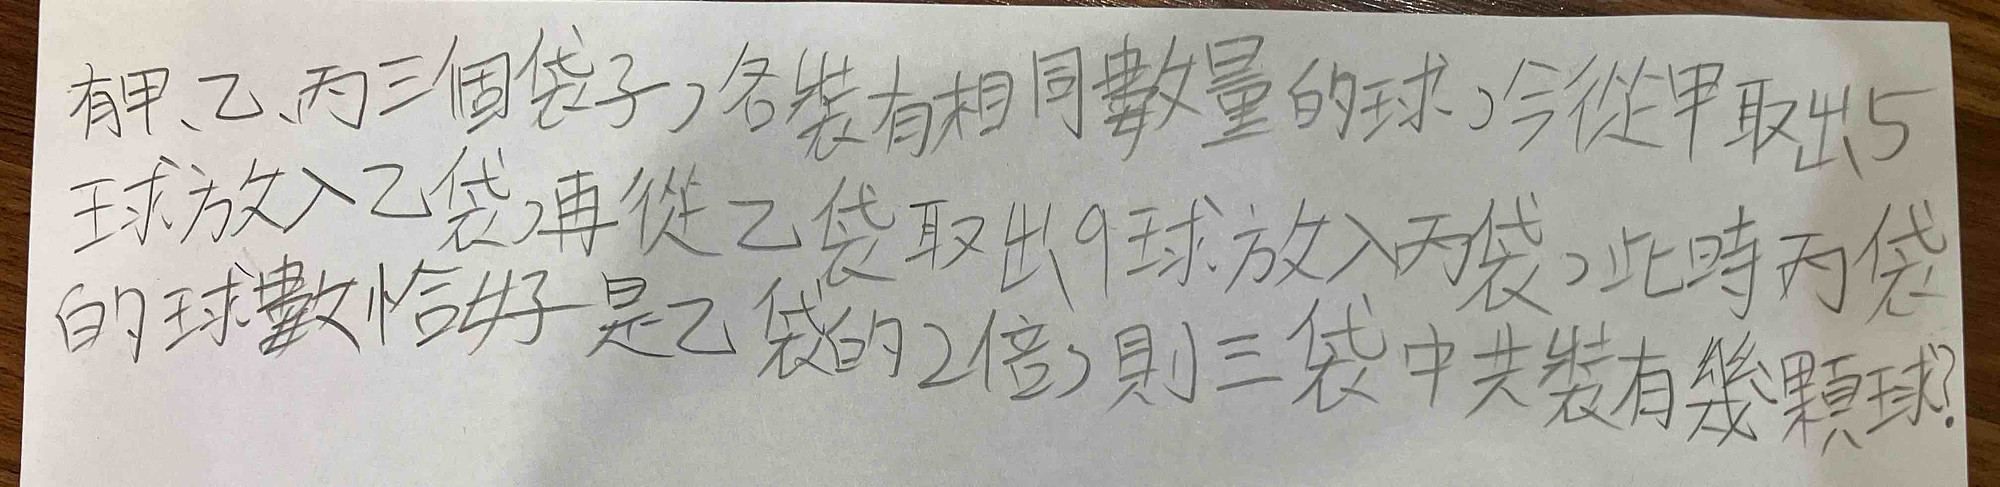 有甲、乙、丙三個袋子,各裝有相同數量的球,今從甲取出5
球放入乙袋,再從乙袋取出9球放入丙袋,此時丙袋
的球數恰好是乙袋的2倍,則三袋中共裝有幾顆球?